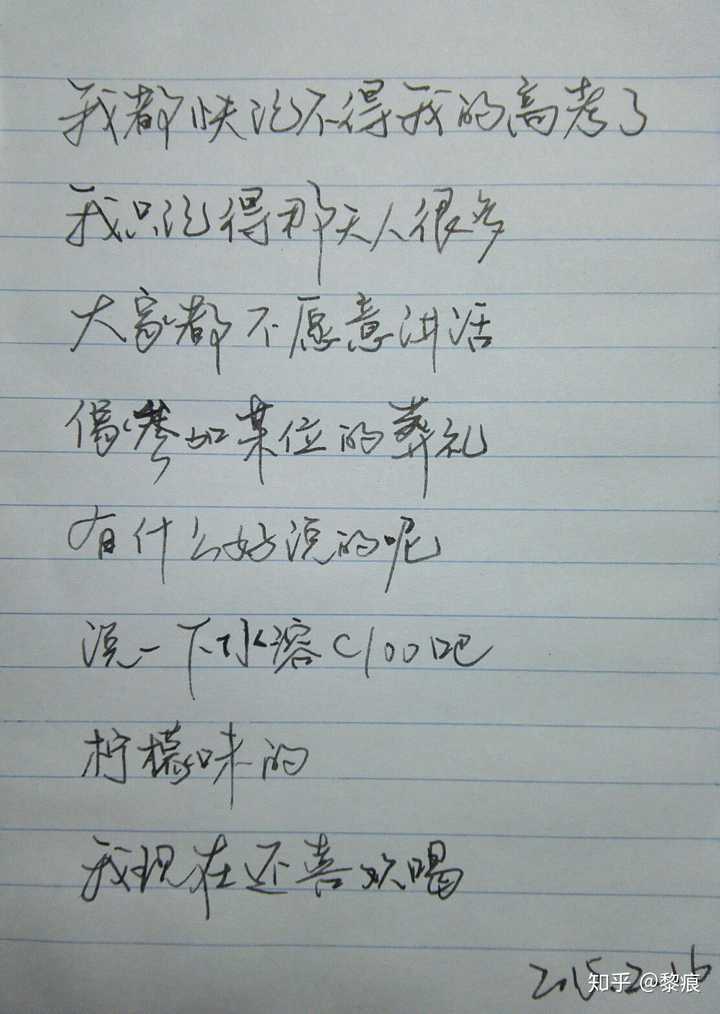 我都快记不得我的高考了
我只记得那天人很多
大家都不愿意讲话
像参加某位的葬礼
有什么好说的呢
说一下水溶C100吧
柠檬味的
我现在还喜欢喝
2015.2.16
知乎 @黎痕